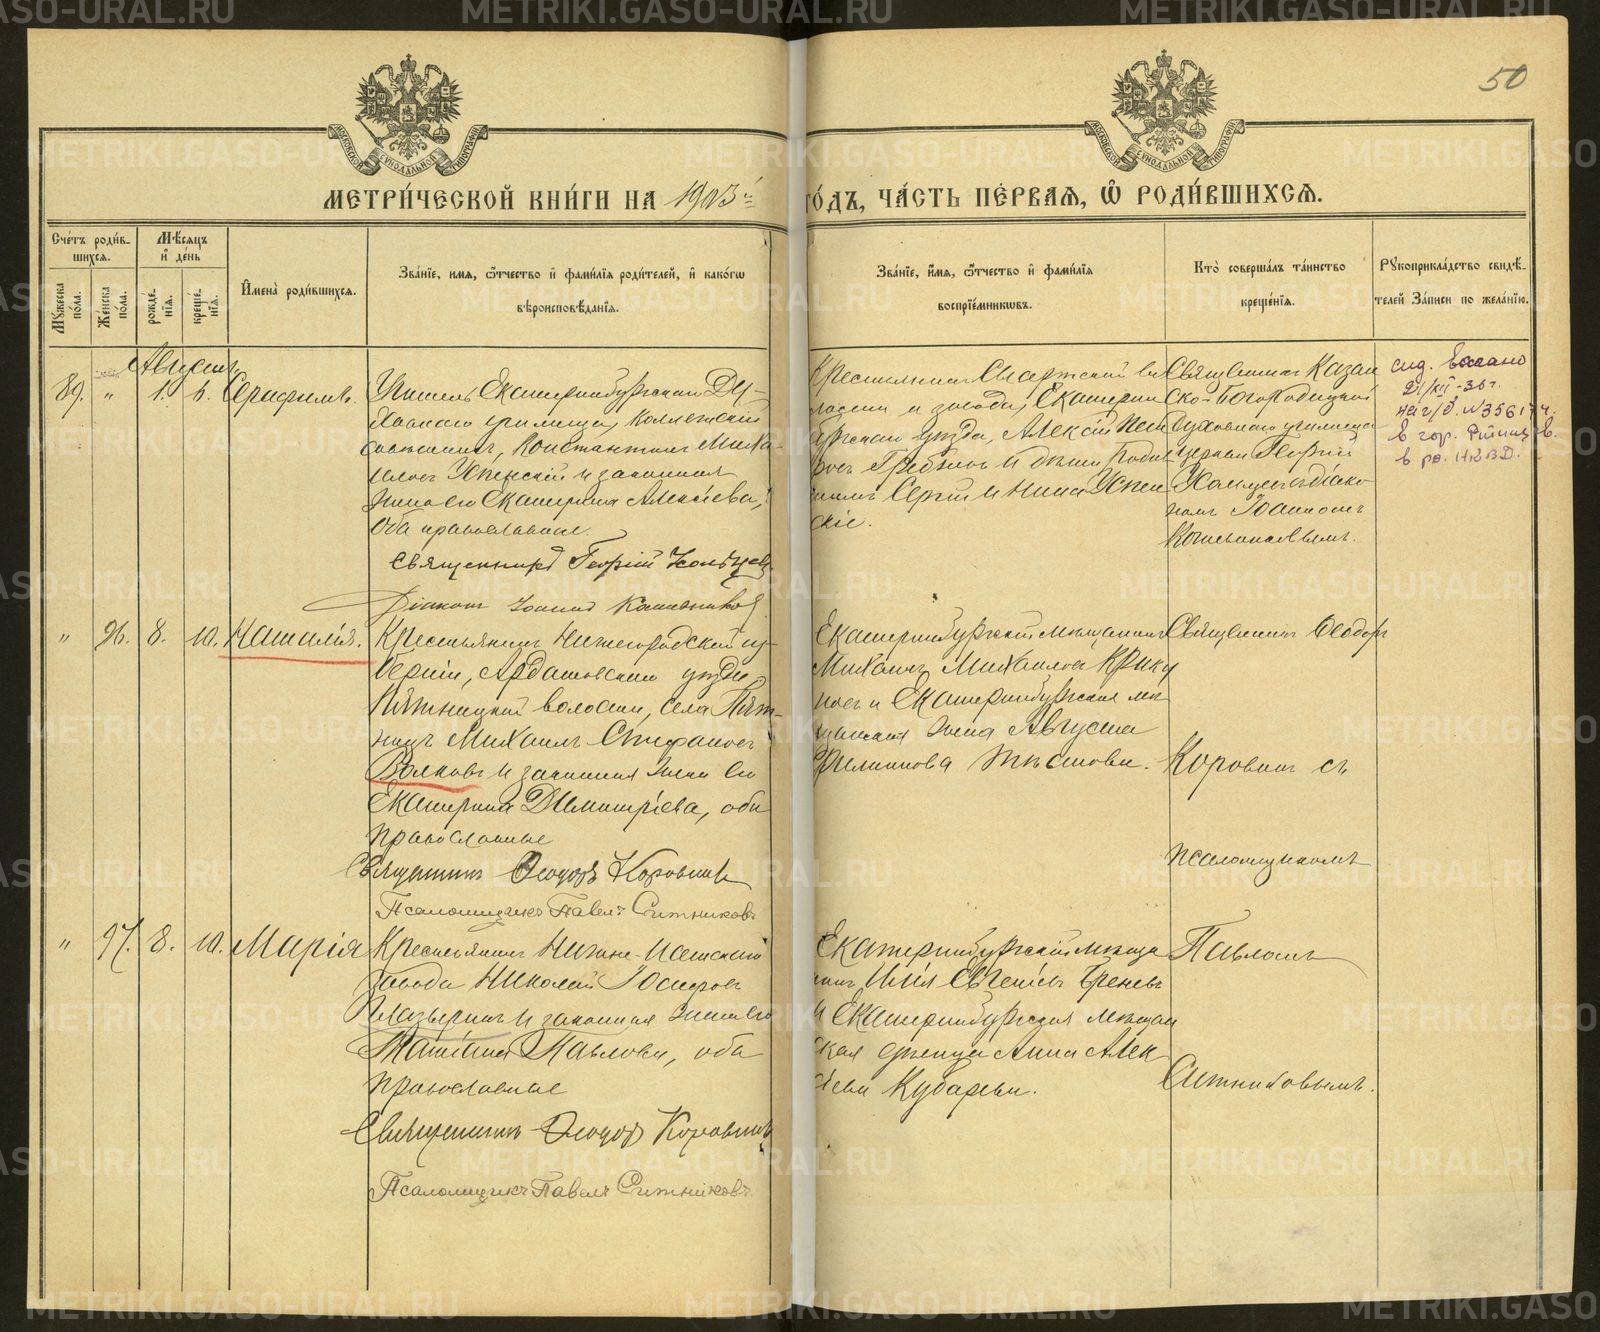 50
МОСКОВСКОЙ СУНОДАЛЬНОЙ ТИПОГРАФІИ
МОСКОВСКОЙ СУНОДАЛЬНОЙ ТИПОГРАФІИ
МЕТРИ́ЧЕСКОЙ КНИ́ГИ НА 1903й ГО́ДЪ, ЧА́СТЬ ПЕ́РВАЯ, Ѡ РОДИ́ВШИХСЯ.
Сче́тъ роди́в-
шихся.
Мꙋ́жеска по́ла.
Же́нска по́ла.
Мѣ́сяцъ и де́нь
рожде́нія.
креще́нія.
Имена̀ роди́вшихся.
Зва́ніе, имя, ѻ́тчество и фами́лія роди́телей, и како́гѡ
вѣроисповѣ́данія.
Зва́ніе, и́мя, ѻ́тчество и фами́лія
воспріе́мникѡвъ.
Кто̀ соверша́лъ та́инство
креще́нія.
Рꙋкоприкла́дство свидѣ́-
телей за́писи по жела́нію.
Августъ
89. " 1. 6. Серафимъ.
Учитель Екатеринбургскаго Ду-
ховнаго училища, Коллежскій
Константинъ Михаи-
ловъ Успенскій и законная
жена его Екатерина Алексіева,
оба православные.
Священникъ Георгій Хользцевъ
Діаконъ Іоаннъ
Алексѣй
Сергій и Нина Успен
скіе.
Священникъ Казан
ско-Богородицкой
Духовнаго училища
церкви Георгій
съ діако
номъ Іоанномъ
21/XII-35г.
№356174
в гор.
в ро. НКВД.
" 96. 8. 10. Наталія.
Крестьянинъ Нижегородской гу-
берніи, Ардатовскаго уѣзда,
Пятницкой волости, села Пят-
ницъ Михаилъ Стефановъ
Волковъ и законная жена его
Екатерина Димитріева, оба
православные
Священникъ Ѳеодоръ Коровинъ
Псаломщикъ Павелъ Ситниковъ
Екатеринбургскій мѣщанинъ
Михаилъ Михаиловъ Крику
новъ и Екатеринбургская мѣ
щанская жена Августа
Филиппова
Священникъ Ѳеодоръ
Коровинъ съ
псаломщикомъ
" 97. 8. 10. Марія
Крестьянинъ Нижне-Исетскаго
завода Николай Іосифовъ
и законная жена его
Татіана Павлова, оба
православные
Священникъ Ѳеодоръ Коровинъ
Псаломщикъ Павелъ Ситниковъ.
Екатеринбургскій мѣща
нинъ Илія Евгеніевъ
и Екатеринбургская мѣщан
ская дѣвица Анна Алек
сіева Кубарева.
Павломъ
Ситниковымъ.
METRIKI.GASO-URAL.RU